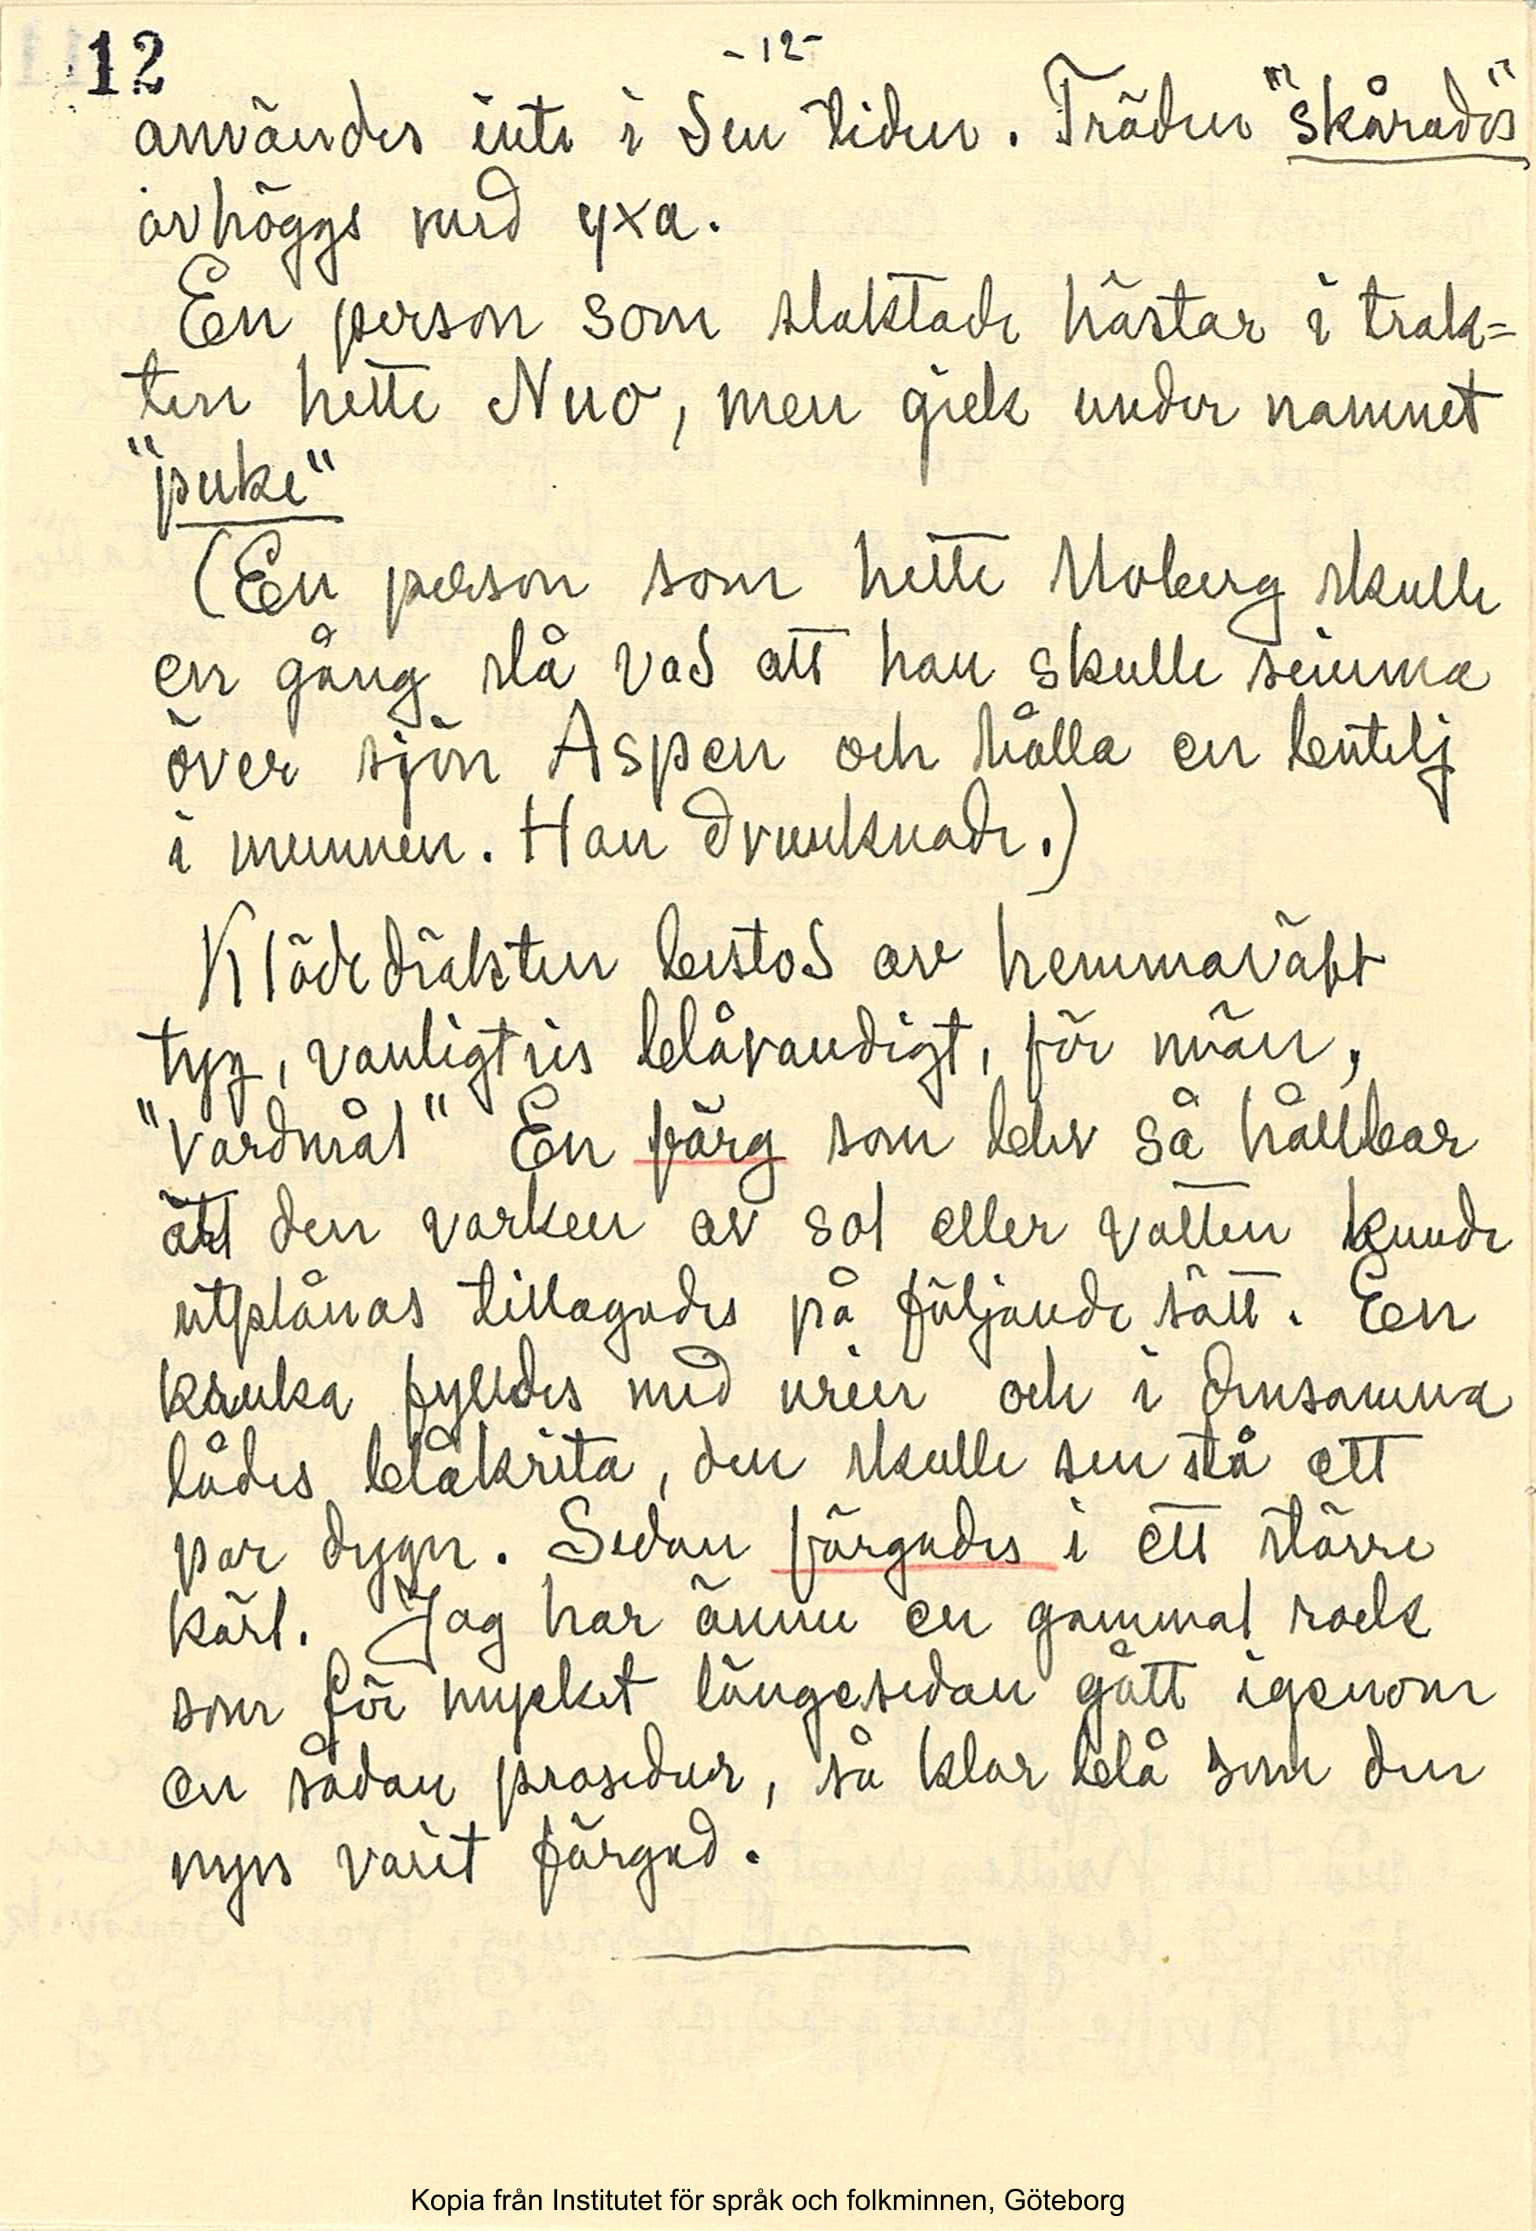 12
-12-
användes inte i den tiden. Träden "skårades"
avhöggs med yxa.
En person som slaktade hästar i trak=
ten hette Nuo, men gick under namnet
"puke"
(En person som hette Moberg skulle
en gång slå vad att han skulle simma
över sjön Aspen och hålla en butelj
i munnen. Han drunknade.)
Klädedräkten bestod av hemmavävt
tyg, vanligtvis blårandigt, för män,
"vardmål" En färg som blev så hållbar
att den varken av sol eller vatten kunde
utplånas tillagades på följande sätt. En
kruka fylldes med urin och i densamma
lades blåkrita, den skulle sen stå ett
par dygn. Sedan färgades i ett större
kärl. Jag har ännu en gammal rock
som för mycket längesedan gått igenom
en sådan prosedur, så klar blå som den
nyss varit färgad.
Kopia från Institutet för språk och folkminnen, Göteborg